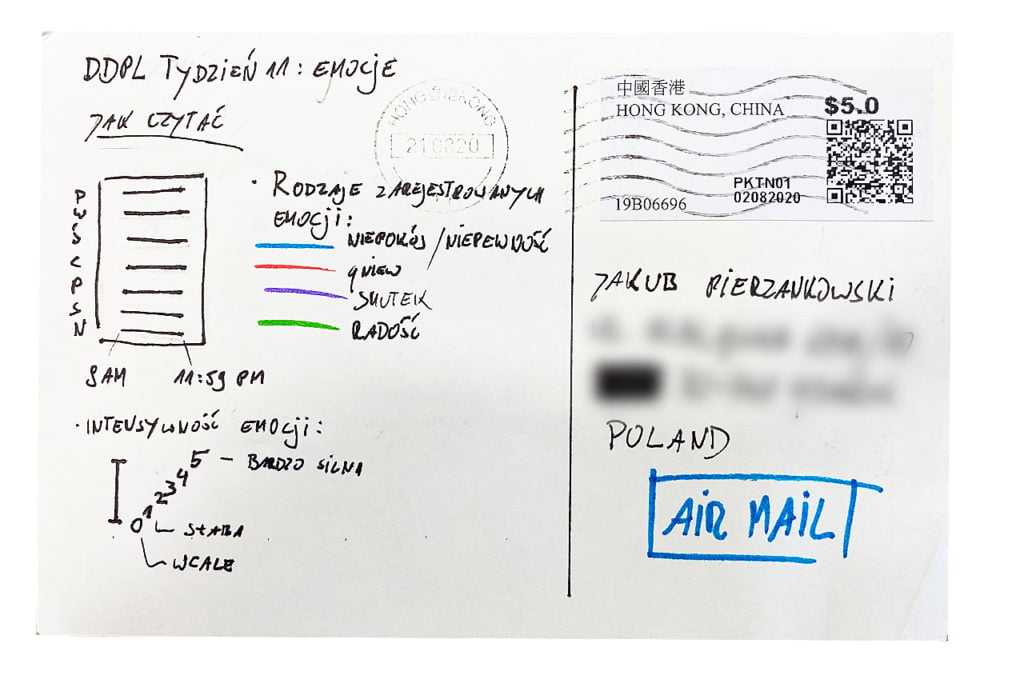 DDPL TYDZIEŃ 11: EMOCJE
JAK CZYTAĆ
P
W
Ś
C
P
S
N
8AM 11:59 PM
· RODZAJE ZAREJESTROWANYCH
EMOCJI:
NIEPOKÓJ / NIEPEWNOŚĆ
GNIEW
SMUTEK
RADOŚĆ
· INTENSYWNOŚĆ EMOCJI:
5 – BARDZO SILNA
4
3
2
1
SŁABA
0
WCALE
HONG KONG
210820
中國香港
HONG KONG, CHINA
$5.0
PKTN01
19B06696 02082020
JAKUB PIERZANKOWSKI
POLAND
AIR MAIL